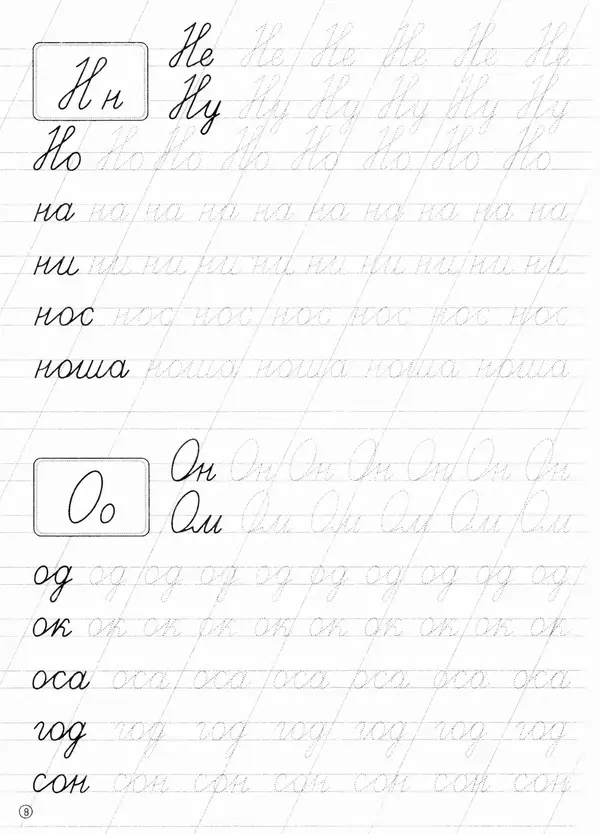 Н н
Не Не Не Не Не Не
Ну Ну Ну Ну Ну Ну
Но Но Но Но Но Но Но Но
на на на на на на на на на на
ни ни ни ни ни ни ни ни ни ни
нос нос нос нос нос нос нос
ноша ноша ноша ноша ноша
О о
Он Он Он Он Он Он Он
Ом Ом Ом Ом Ом Ом
од од од од од од од од од од
ок ок ок ок ок ок ок ок ок ок
оса оса оса оса оса оса оса
год год год год год год год
сон сон сон сон сон сон сон
8